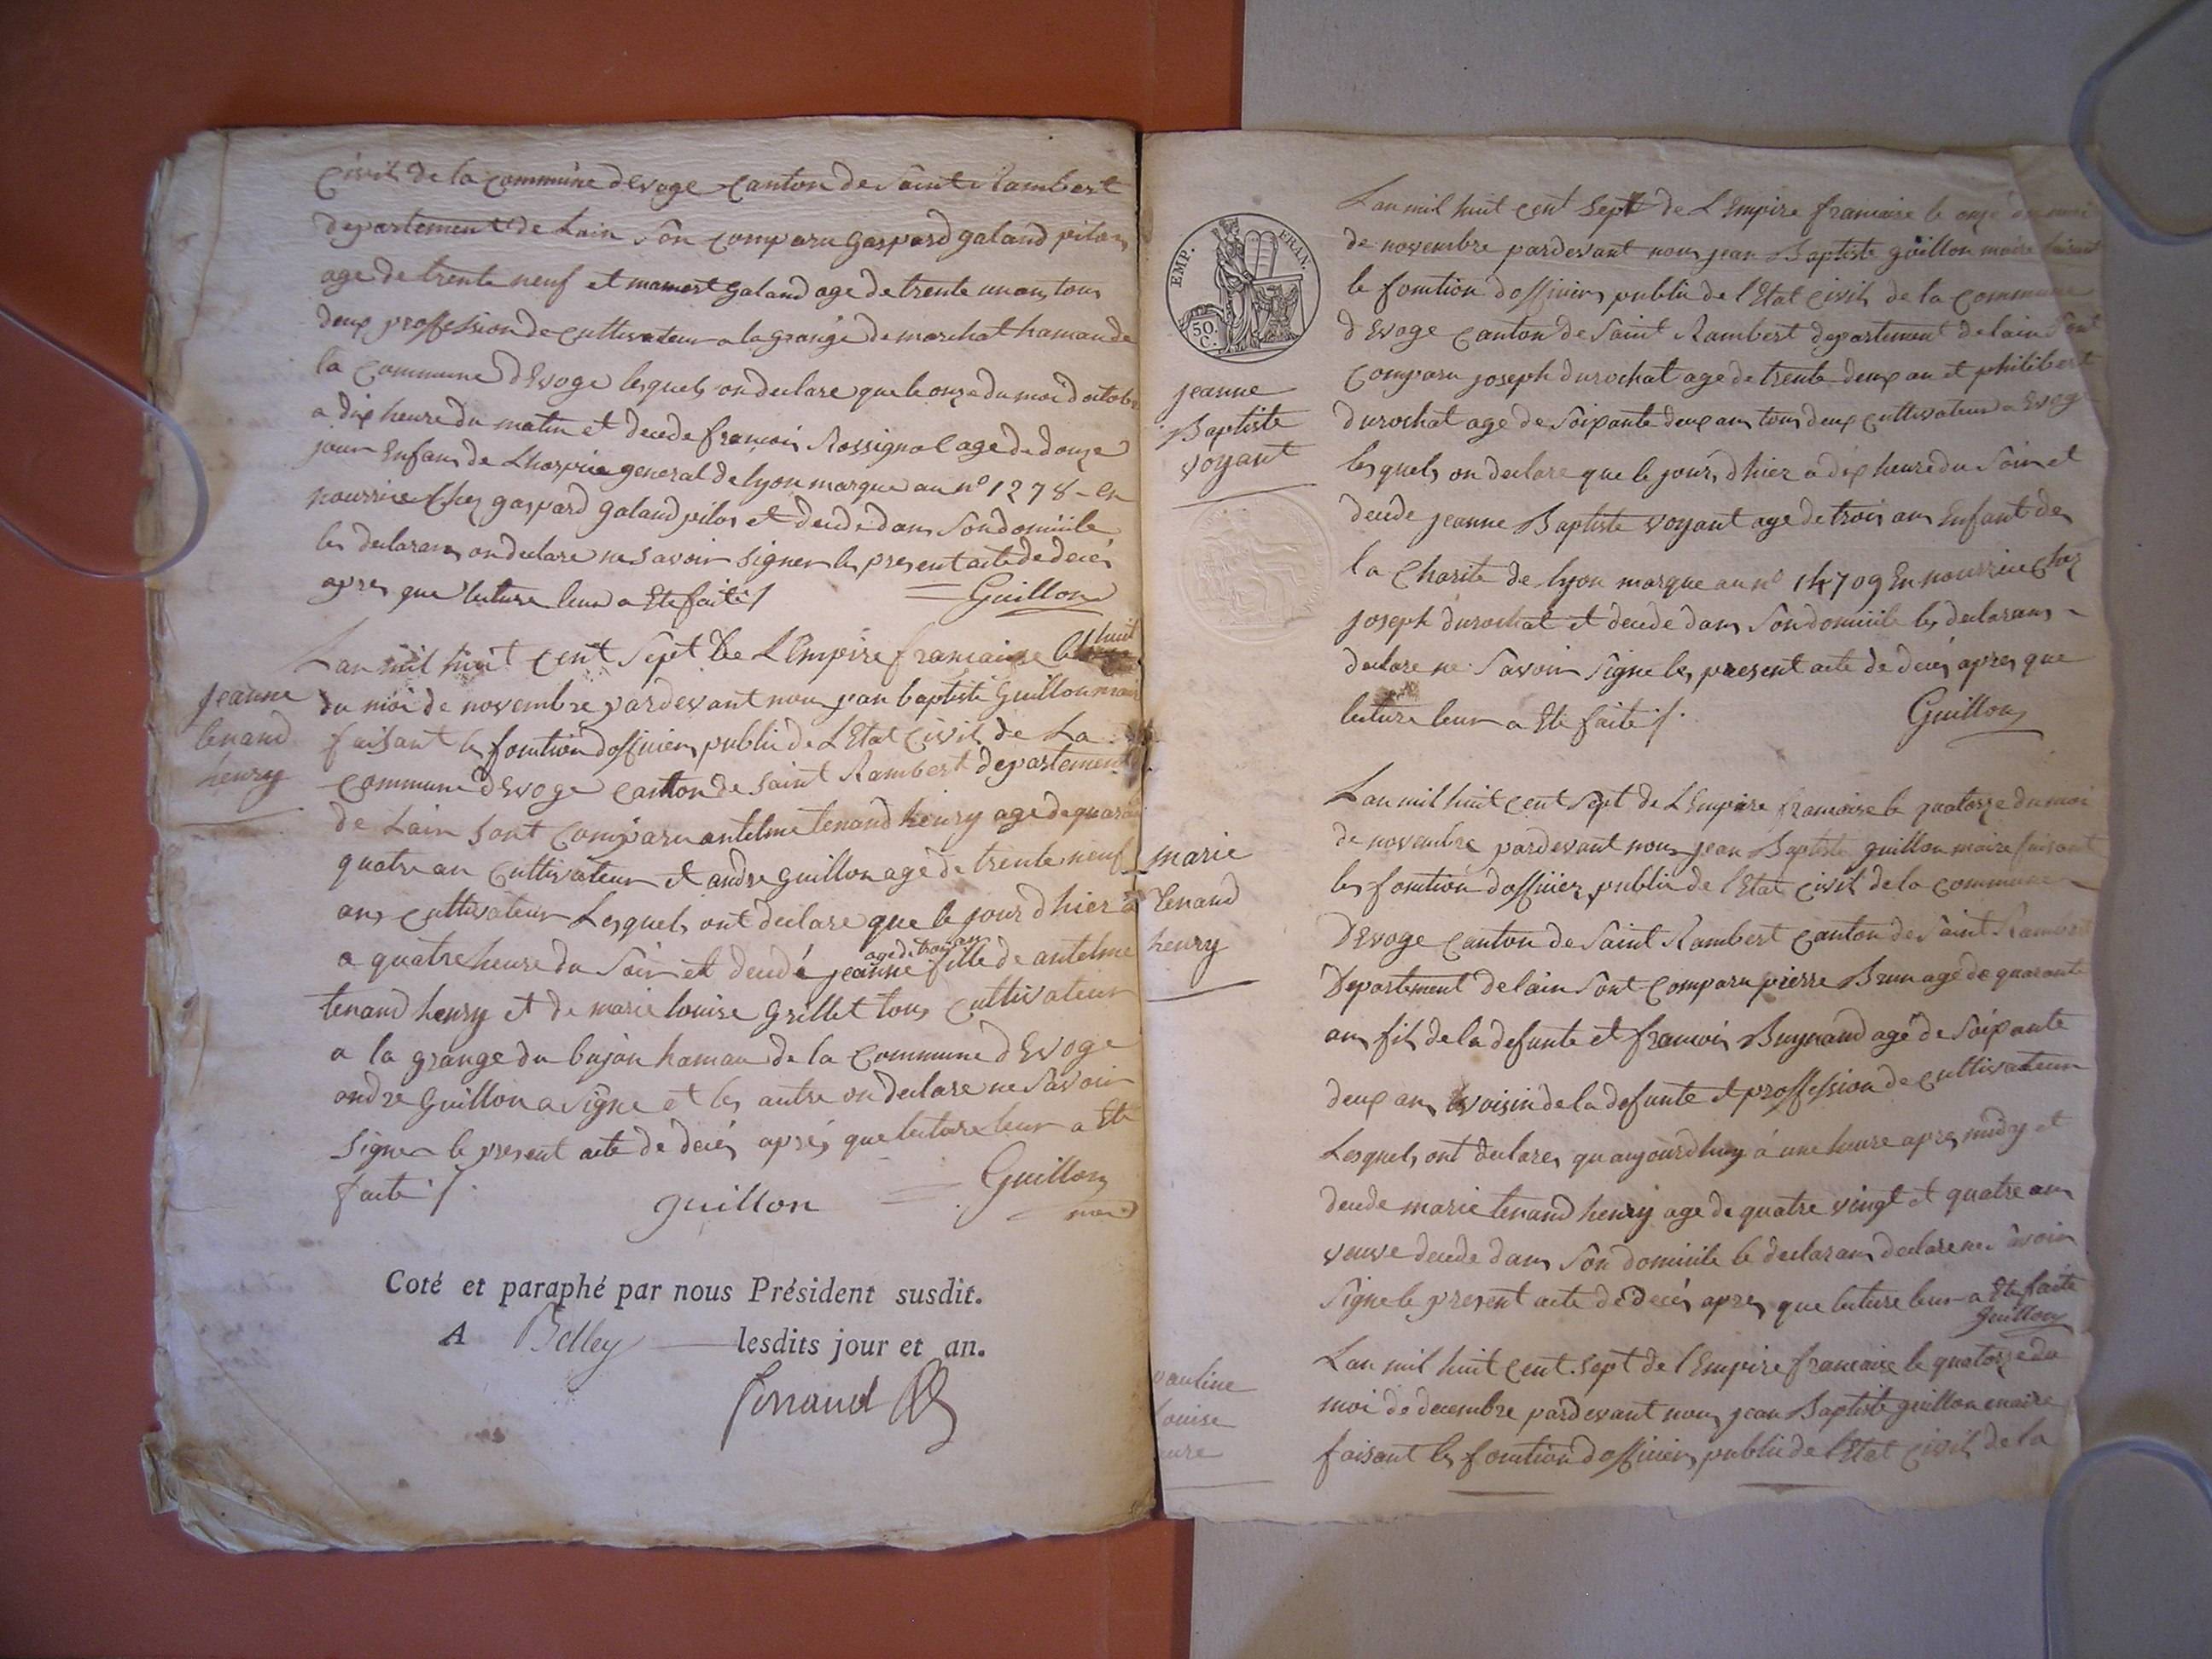 Civil de la commune devoge canton de Saint Rambert
departement de Lain Son comparu gaspard galand pilon
age de trente neuf et mamert galand age de trente un an tous
deux proffession de cultivateur a la grange de marchat hamau de
la Commune d'Evoge lesquels on declare que le onze du moi doctobre
a dix heure du matin et decede francois Rossignol age de douze
jour Enfans de Lhospice general de lyon marque au n° 1278 - en
nourrice Chez gaspard galand pilon et decede dans Son domicile
les declarans on declare ne savoir signer le present acte de decés
apres que lecture leur a Ete faite /
Guillon
Jeanne
tenand
henry
Lan mil huit cent Sept De L'Empire francaise le huit
du moi de novembre pardevant nous jean baptiste Guillon maire
faisant les fonction d'officier public de L'Etat Civil de La
Commune d'Evoge canton de Saint Rambert departement
de Lain Sont Comparu antelme tenand henry age de quarante
quatre an Cultivateur et andre guillon age de trente neuf
ans cultivateur Lesquels ont declare que le jour d'hier
a quatre heure du Soir et decedé jeanne age de trois ans fille de antelme
tenand henry et de marie louise Grillet tous cultivateur
a la grange du bujon hamau de la Commune d'Evoge
andre Guillon a Signe et les autre on declare ne Savoir
Signer le present acte de decés aprés que lecture leur a Ete
faite /.
guillon
Guillon
maire
Coté et paraphé par nous Président susdit.
A Belley lesdits jour et an.
EMP. FRAN.
50.
C.
jeanne
Baptiste
voyant
Lan mil huit cent Sept de L'Empire francaise le onze du moi
de novembre pardevant nous jean Baptiste guillon maire faisant
le fonction d'officier public de l'Etat Civil de la Commune
d'Evoge Canton de Saint Rambert departement de lain Sont
Comparu joseph durochat age de trente deux an et philibert
durochat age de Soixante deux ans tous deux cultivateur a Evoge
lesquels on declare que le jour d'hier a dix heure du Soir et
decede jeanne Baptiste voyant age de trois ans Enfant de
la Charite de lyon marque au n° 14709 En nourrice Chez
joseph durochat et decede dans Son domicile les declarans
declare ne Savoir Signe les present acte de decés apres que
lecture leur a Ete faite /.
Guillon
marie
tenand
henry
Lan mil huit cent Sept de L'Empire francaise le quatorze du moi
de novembre pardevant nous jean Baptiste guillon maire faisant
les fonction d'officier public de l'Etat Civil de la commune
D'Evoge Canton de Saint Rambert canton de Saint Rambert
Departement de lain Sont Comparu pierre Brun age de quarante
ans fils de la defunte et francois Buynand agé de Soixante
deux ans voisin de la defunte et proffession de cultivateur
Lesquels ont declares qu aujourdhuy à une heure apres midy et
decede marie tenand henry age de quatre vingt et quatre ans
veuve decede dans Son domicile le declarans declare ne Savoir
Signe le present acte de decés apres que lecture leur a Ete faite
Guillon
pauline
louise
Lan mil huit cent Sept de l'Empire francaise le quatorze du
moi de decembre pardevant nous jean Baptiste guillon maire
faisant les fonction d'officier public de l'Etat Civil de la